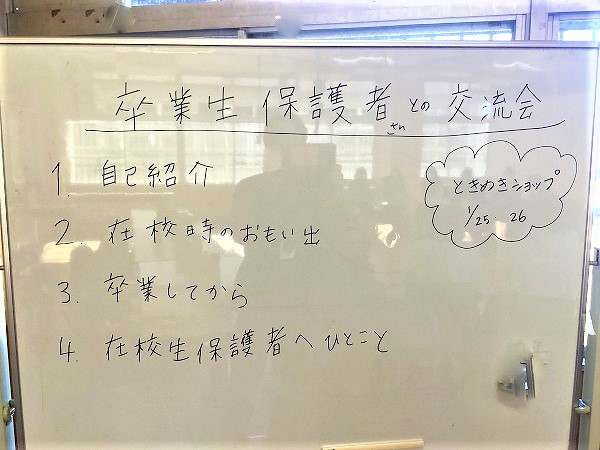 卒業生保護者さんとの交流会
1. 自己紹介
2. 在校時のおもい出
3. 卒業してから
4. 在校生保護者へひとこと
ときめきショップ
1/25. 26